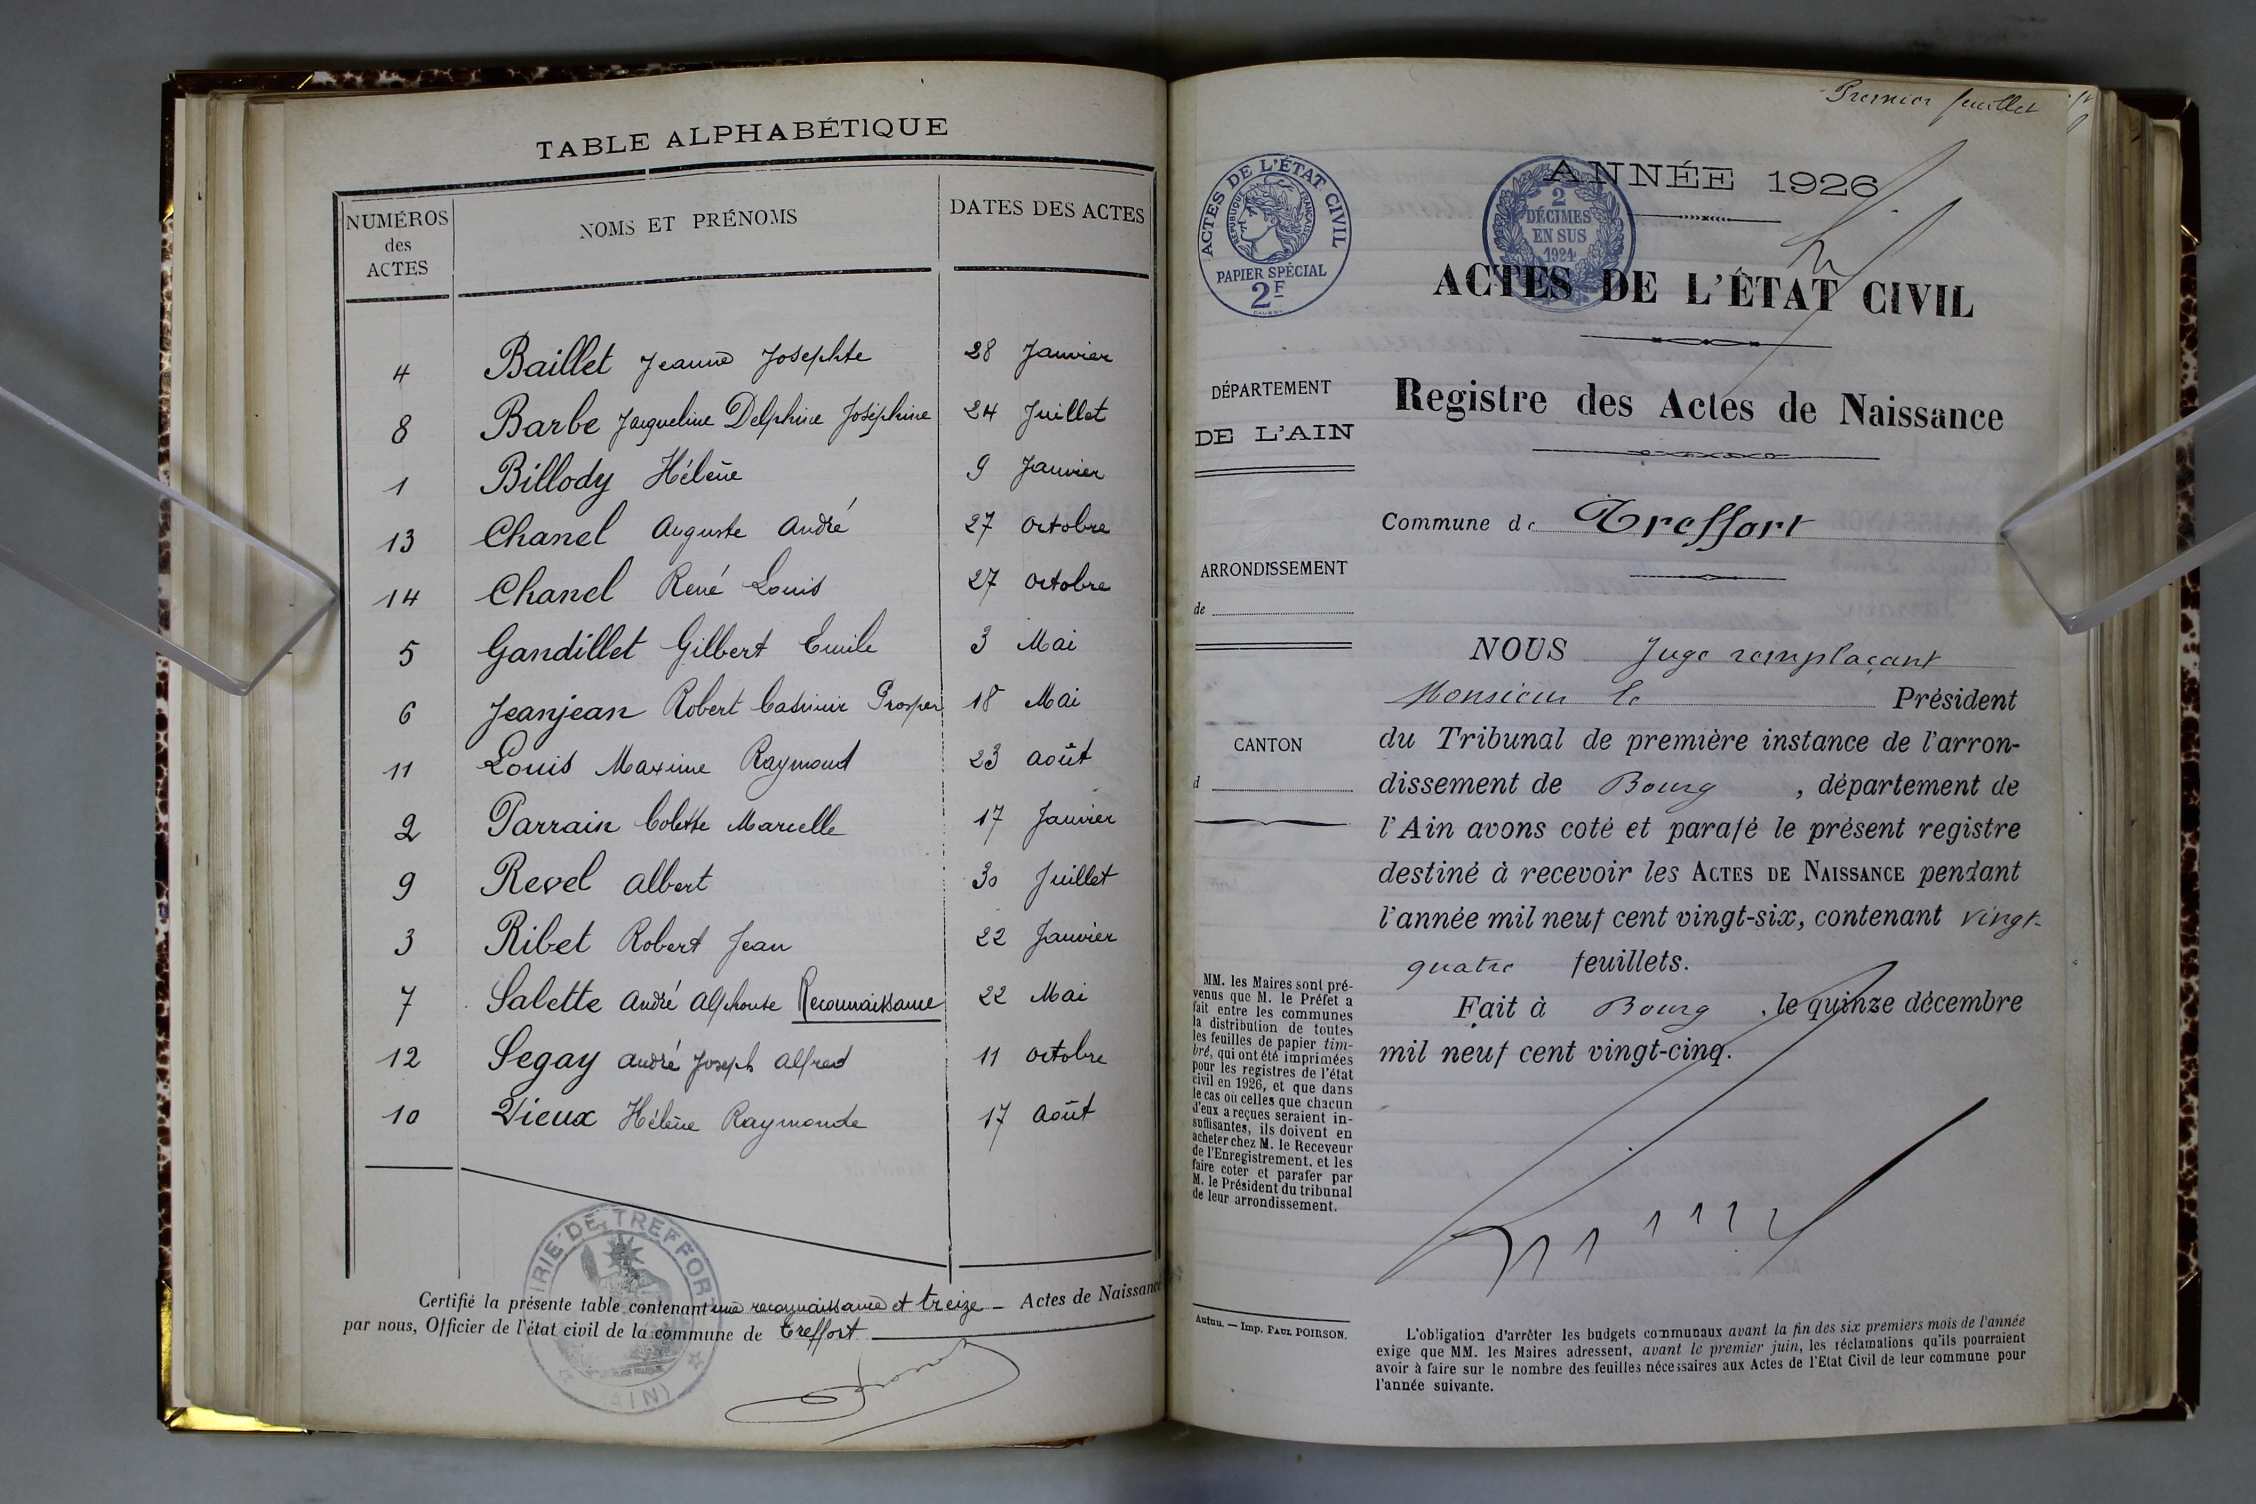 TABLE ALPHABÉTIQUE
NUMÉROS des ACTES NOMS ET PRÉNOMS DATES DES ACTES
4 Baillet Jeanne Josephte 28 Janvier
8 Barbe Jacqueline Delphine Joséphine 24 Juillet
1 Billody Hélène 9 Janvier
13 Chanel Auguste André 27 Octobre
14 Chanel René Louis 27 Octobre
5 Gandillet Gilbert Emile 3 Mai
6 Jeanjean Robert Casimir Prosper 18 Mai
11 Louis Maxime Raymond 23 Août
2 Parrain Colette Marcelle 17 Janvier
9 Revel Albert 30 Juillet
3 Ribet Robert Jean 22 Janvier
7 Salette André Alphonse Reconnaissance 22 Mai
12 Segay André Joseph Alfred 11 Octobre
10 Vieux Hélène Raymonde 17 Août
MAIRIE DE TREFFORT
(AIN)
Certifié la présente table contenant une reconnaissance et treize - Actes de Naissance
par nous, Officier de l'état civil de la commune de Treffort
Premier feuillet
ACTES DE L'ÉTAT CIVIL
RÉPUBLIQUE FRANÇAISE
PAPIER SPÉCIAL
2F
2
DÉCIMES
EN SUS
1924
ANNÉE 1926
ACTES DE L'ÉTAT CIVIL
DÉPARTEMENT
DE L'AIN
Registre des Actes de Naissance
Commune de Treffort
ARRONDISSEMENT
de
CANTON
d
NOUS Juge remplaçant
Monsieur le Président
du Tribunal de première instance de l'arron-
dissement de Bourg , département de
l'Ain avons coté et parafé le présent registre
destiné à recevoir les ACTES DE NAISSANCE pendant
l'année mil neuf cent vingt-six, contenant vingt-
quatre feuillets.
Fait à Bourg , le quinze décembre
mil neuf cent vingt-cinq.
MM. les Maires sont pré-
venus que M. le Préfet a
fait entre les communes
la distribution de toutes
les feuilles de papier tim-
bré, qui ont été imprimées
pour les registres de l'état
civil en 1926, et que dans
le cas où celles que chacun
d'eux a reçues seraient in-
suffisantes, ils doivent en
acheter chez M. le Receveur
de l'Enregistrement, et les
faire coter et parafer par
M. le Président du tribunal
de leur arrondissement.
Autun. — Imp. PAUL POIRSON.
L'obligation d'arrêter les budgets communaux avant la fin des six premiers mois de l'année
exige que MM. les Maires adressent, avant le premier juin, les réclamations qu'ils pourraient
avoir à faire sur le nombre des feuilles nécessaires aux Actes de l'Etat Civil de leur commune pour
l'année suivante.